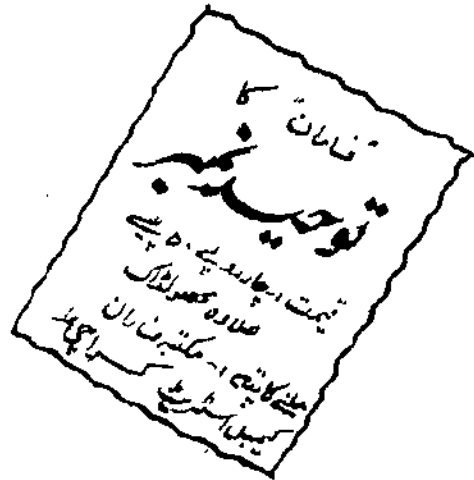 "فاران" کا
توحید نمبر
قیمت :۔ چار روپے ۵۰ پیسے
علاوہ محصولڈاک
ملنے کا پتہ :۔ مکتبہ فاران
کیمبل اسٹریٹ کراچی ۱